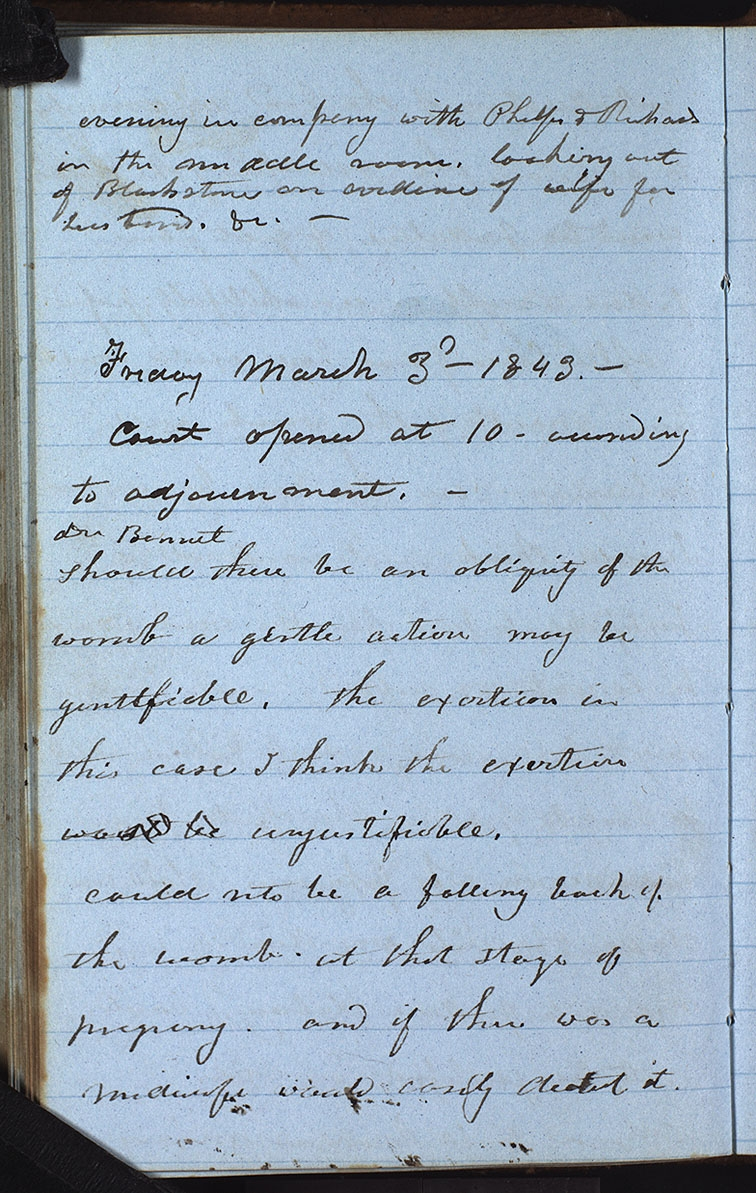 evening in company with Phelps & Richards
in the middle room. looking out
of Blackstone on evidence of wife for
husband. &c. —
Friday March 3d — 1843. —
Court opened at 10 - according
to adjournment. —
Dr Bennet
Should there be an obliquity of the
womb a gentle action may be
gentifiable. the exertion in
this case I think the exertion
would be unjustifiable.
could not be a falling back of
the womb. at that stage of
pregnany. and if there was a
midwife would easily detect it.